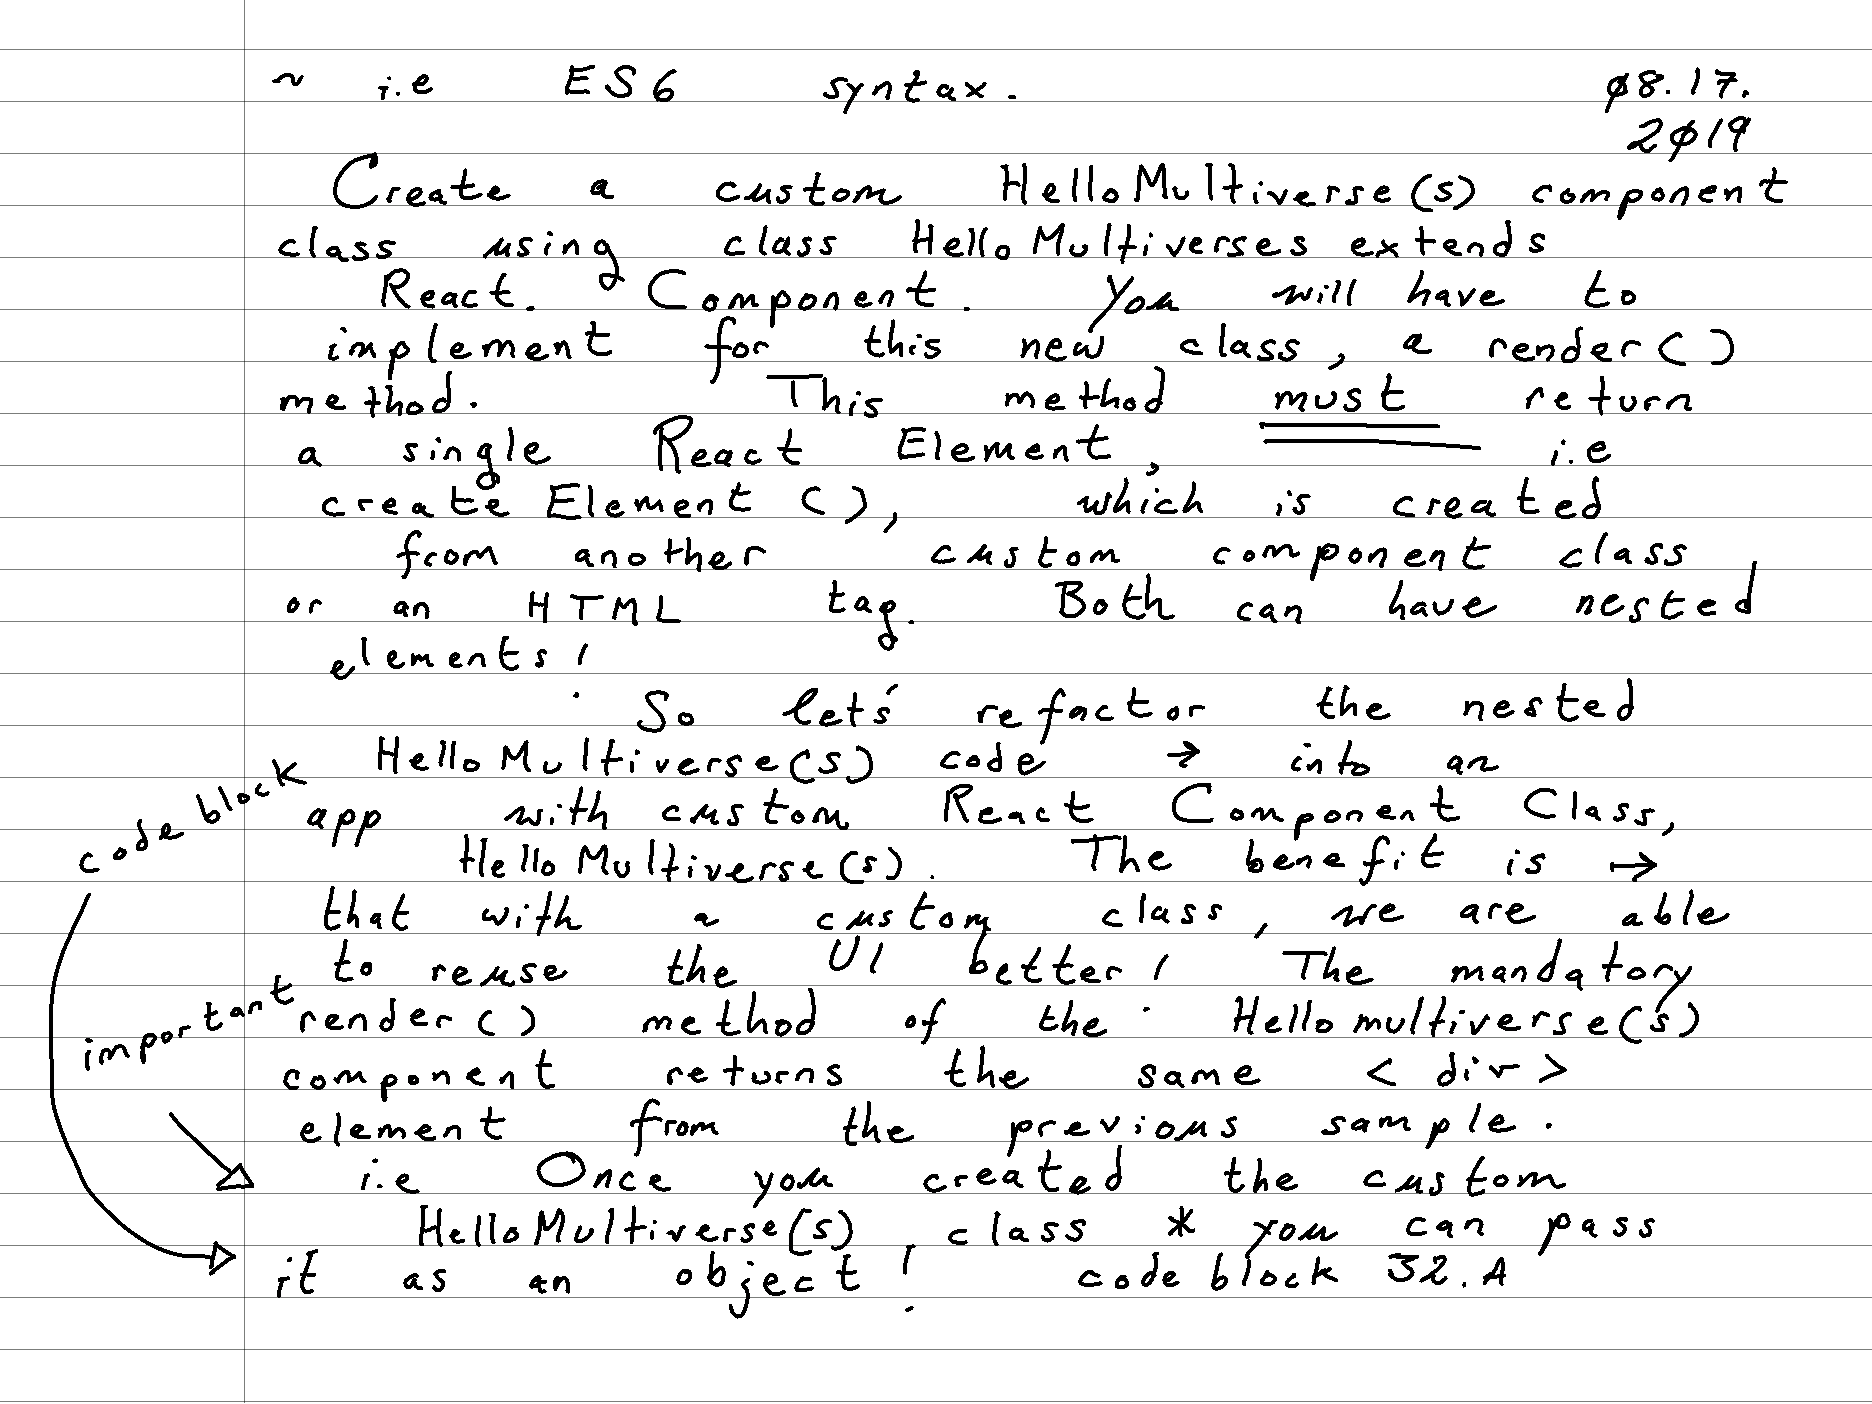 ~ i.e ES6 syntax. 08.17.
2019
Create a custom HelloMultiverse(s) component
class using class HelloMultiverses extends
React. Component. You will have to
implement for this new class, a render()
method. This method must return
a single React Element, i.e
createElement(), which is created
from another custom component class
or an HTML tag. Both can have nested
elements!
So let's refactor the nested
HelloMultiverse(s) code → into an
app with custom React Component Class,
HelloMultiverse(s). The benefit is →
that with a custom class, we are able
to reuse the UI better! The mandatory
render() method of the Hellomultiverse(s)
component returns the same <div>
element from the previous sample.
i.e Once you created the custom
HelloMultiverse(s) class * you can pass
it as an object! code block 32.A
code block
important